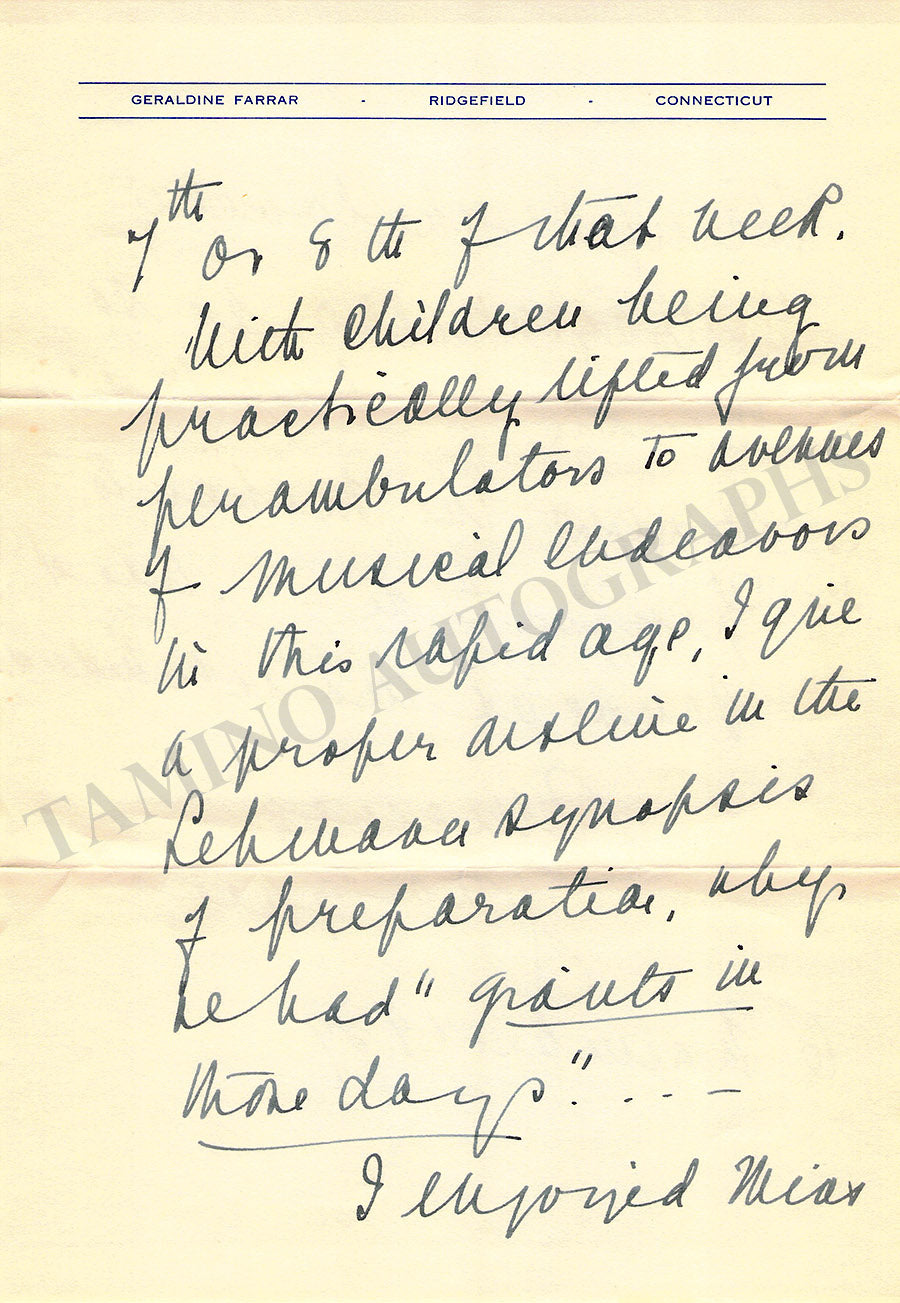 GERALDINE FARRAR - RIDGEFIELD - CONNECTICUT
7th or 8th of that week.
With children being
practically lifted from
perambulators to avenues
of musical endeavors
in this rapid age, I give
a proper outline in the
Lehmann synopsis
of preparation, why
we had "giants in
those days". . . . —
I enjoyed Miss
TAMINO AUTOGRAPHS